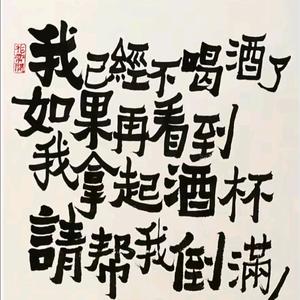 我已經不喝酒了
如果再看到
我拿起酒杯
請帮我倒滿